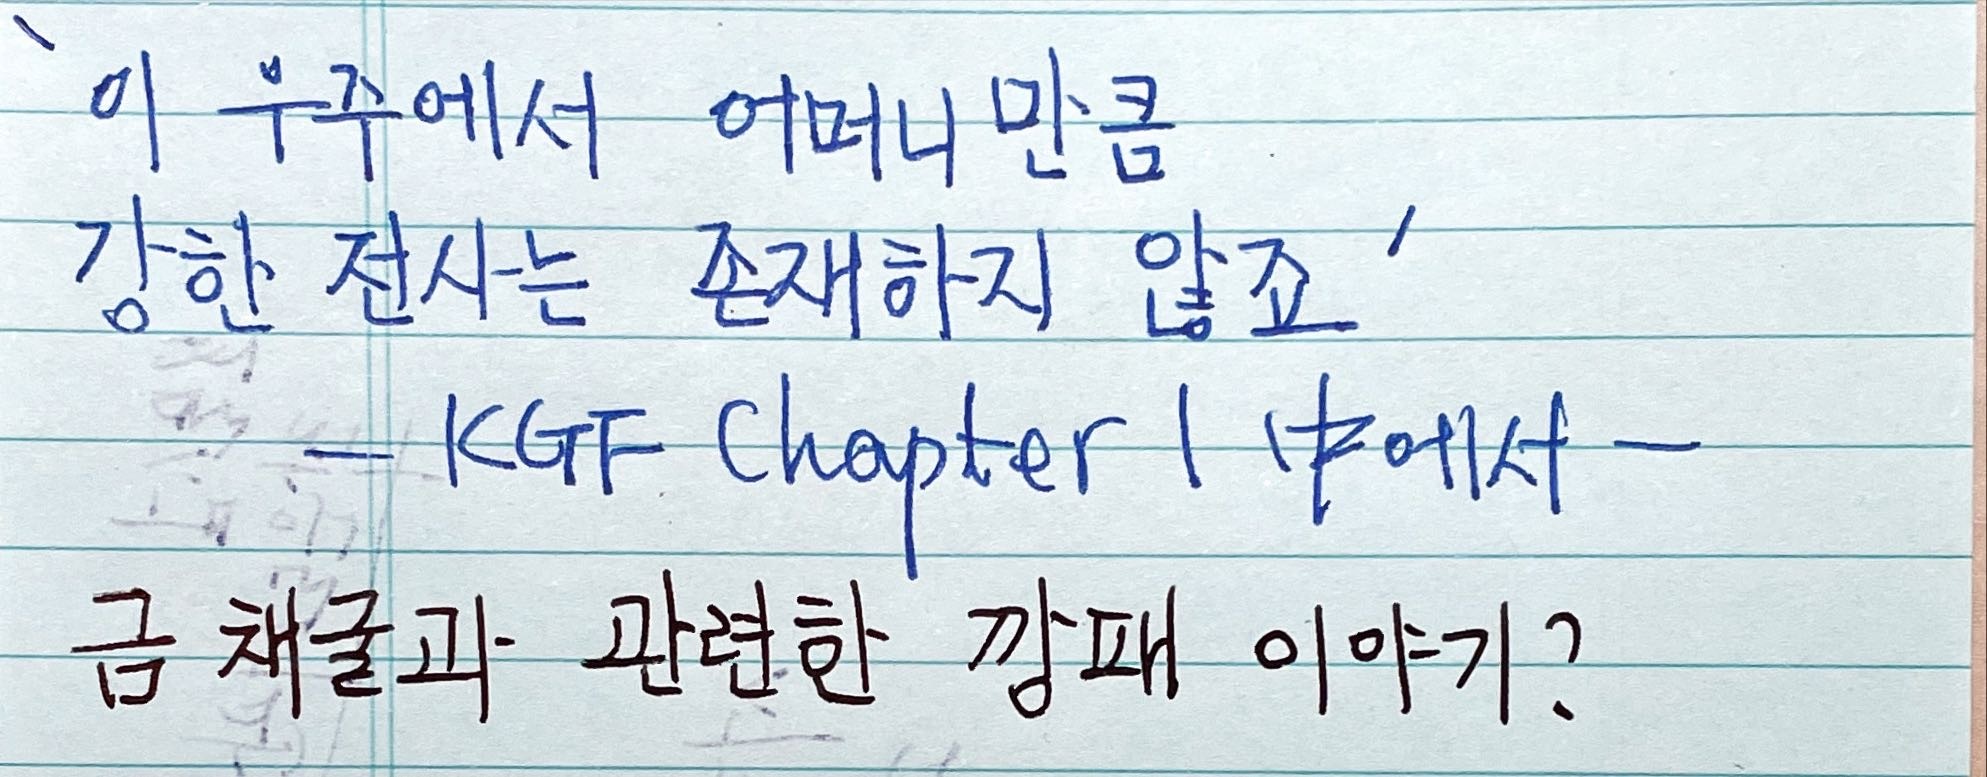 ‵이 우주에서 어머니만큼
강한 전사는 존재하지 않죠′
— KGF Chapter 1 中에서 —
금 채굴과 관련한 깡패 이야기?